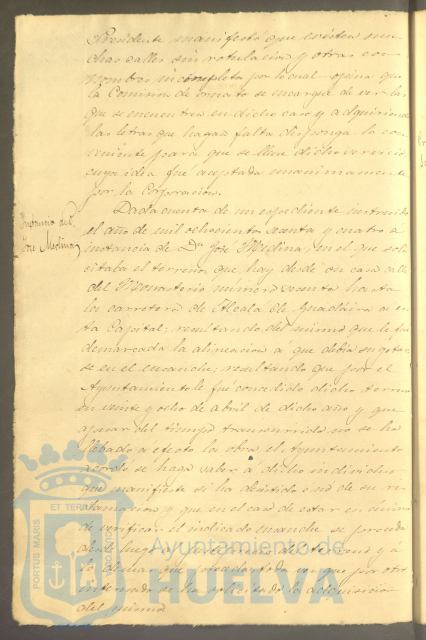 Presidente manifestó que existen mu-
chas calles sin rotulacion y otras con
nombres incompletos por lo cual opina que
la Comision de ornato se encargue de ver las
que se encuentren en dicho caso y adquiriendo
las letras que hagan falta disponga lo con-
veniente para que se lleve dicho servicio
cuya idea fué aceptada unanimamente
por la Corporacion.
Instancia de Dn.
José Medina
Dada cuenta de un espediente instruido
el año de mil ochocientos setenta y cuatro a
instancia de Dn. José Medina, en el que soli-
citaba el terreno que hay desde su casa calle
del Monasterio número hasta
la carretera de Alcala de Guadaira a es-
ta Capital; resultando del mismo que le fue
demarcada la alineacion a que debia sugetar-
se en el ensanche; resultando que por el
Ayuntamiento le fué concedido dicho terreno
en veinte y ocho de abril de dicho año y que
apesar del tiempo transcurrido no se ha
llebado a efecto la obra el Ayuntamiento
acordó se haga saber a dicho individuo
que manifieste si ha desistido ó nó de su re-
clamacion y que en el caso de estar en ánimo
de verificar el indicado ensanche se proceda
desde luego al del terreno y a
lo demas que por otro
interesado se ha solicitado la adquisicion
del mismo
PORTUS MARIS
ET TERRAE
Ayuntamiento de
HUELVA